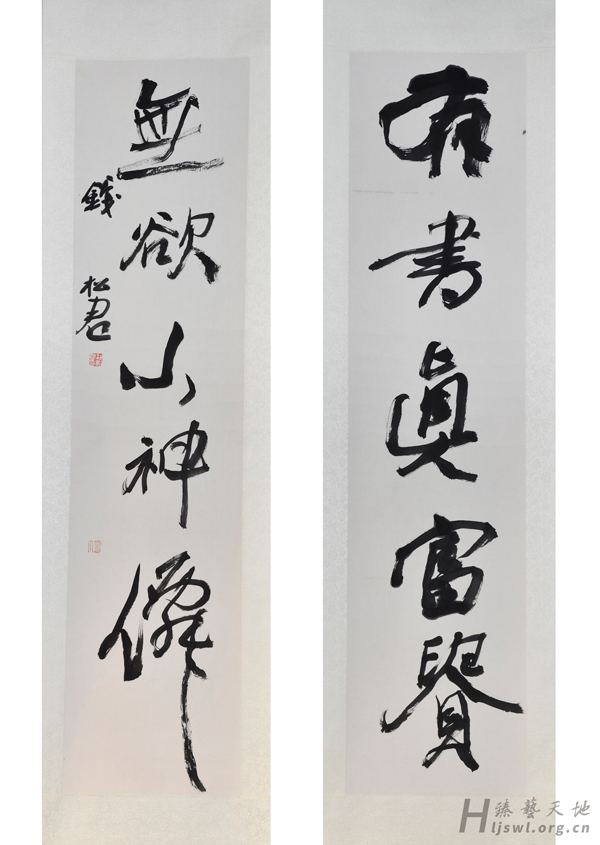 有書眞富貴
無欲小神僊
錢松君
臻藝天地
Hljswl.org.cn